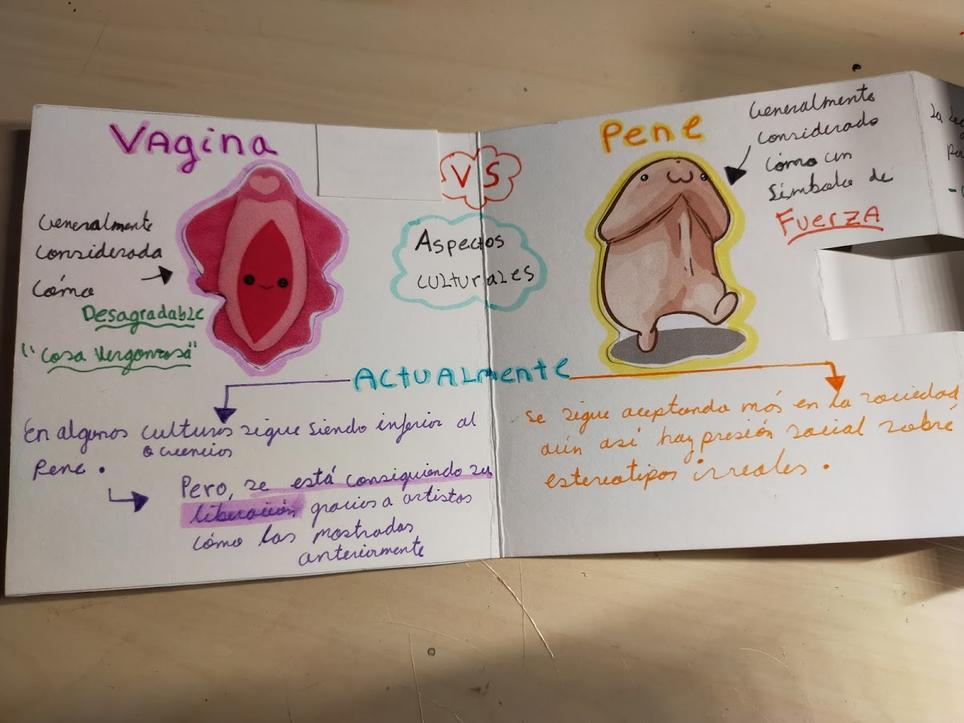 Vagina
VS
Pene
Aspectos
culturales
Generalmente
considerada
cómo
Desagradable
"Cosa Vergonzosa"
Generalmente
considerado
cómo un
símbolo de
FUERZA
ACTUALMENTE
En algunas culturas sigue siendo inferior al
o creencias
pene.
Pero, se está consiguiendo su
liberación gracias a artistas
cómo las mostradas
anteriormente
Se sigue aceptando más en la sociedad
aún así hay presión social sobré
estereotipos irreales.